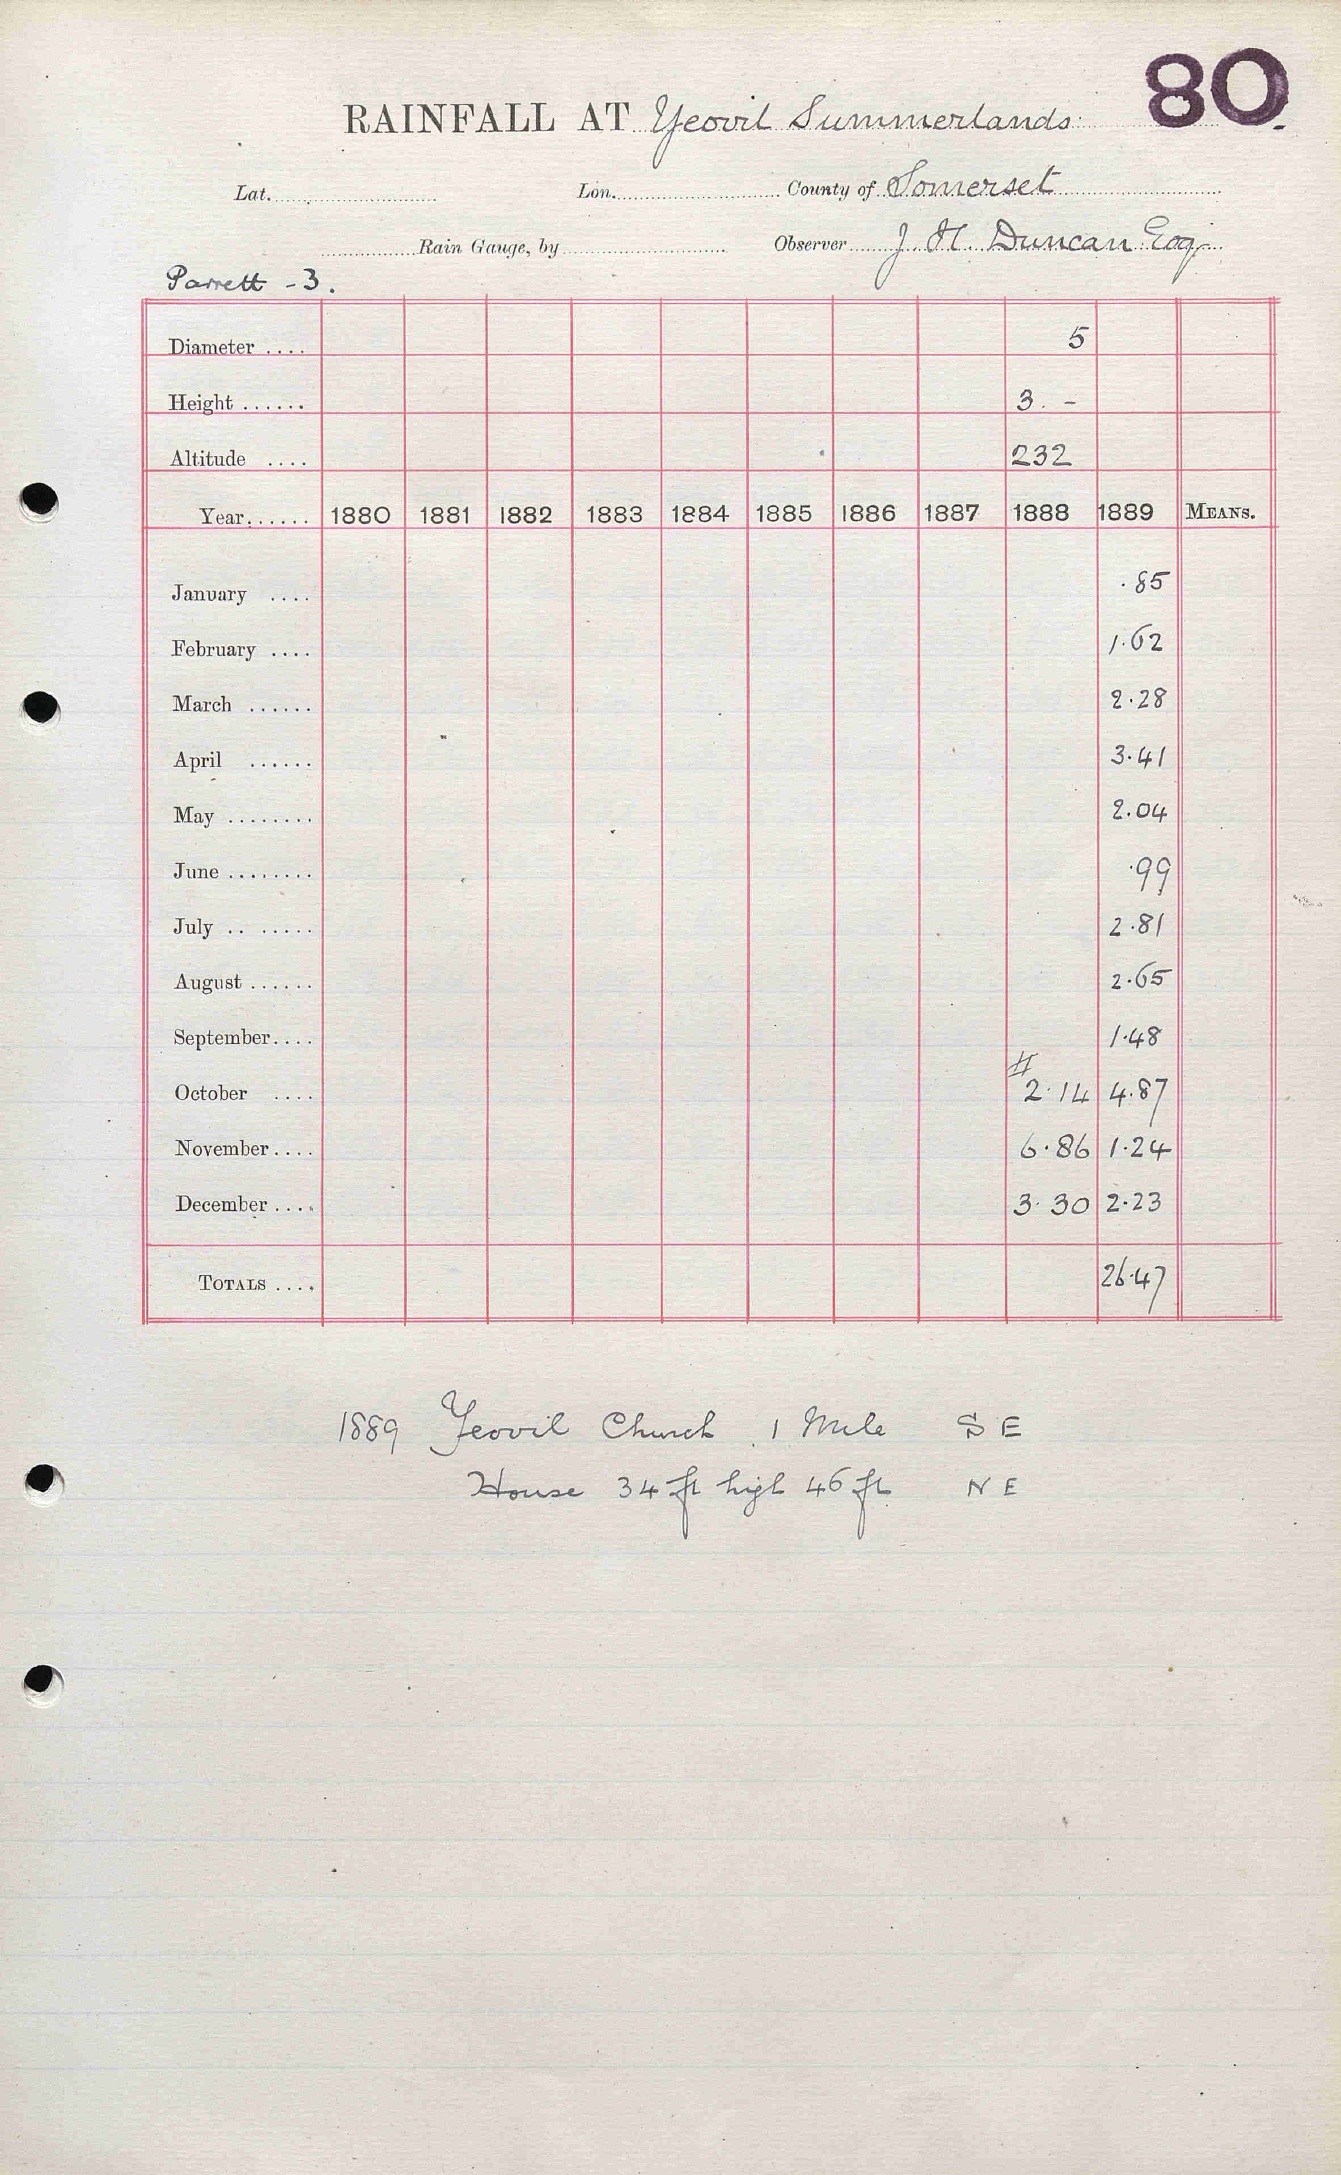 80.
RAINFALL AT Yeovil Summerlands
Lat. Lon. County of Somerset
Rain Gauge, by Observer J H Duncan Esq
Parrett - 3.
Diameter .... 5
Height ...... 3. -
Altitude .... 232
Year...... 1880 1881 1882 1883 1884 1885 1886 1887 1888 1889 MEANS.
January .... .85
February .... 1.62
March ...... 2.28
April ...... 3.41
May ........ 2.04
June ........ .99
July .. ..... 2.81
August ...... 2.65
September.... 1.48
#
October .... 2.14 4.87
November.... 6.86 1.24
December .... 3.30 2.23
TOTALS .... 26.47
1889 Yeovil Church 1 Mile S E
House 34 ft high 46 ft N E